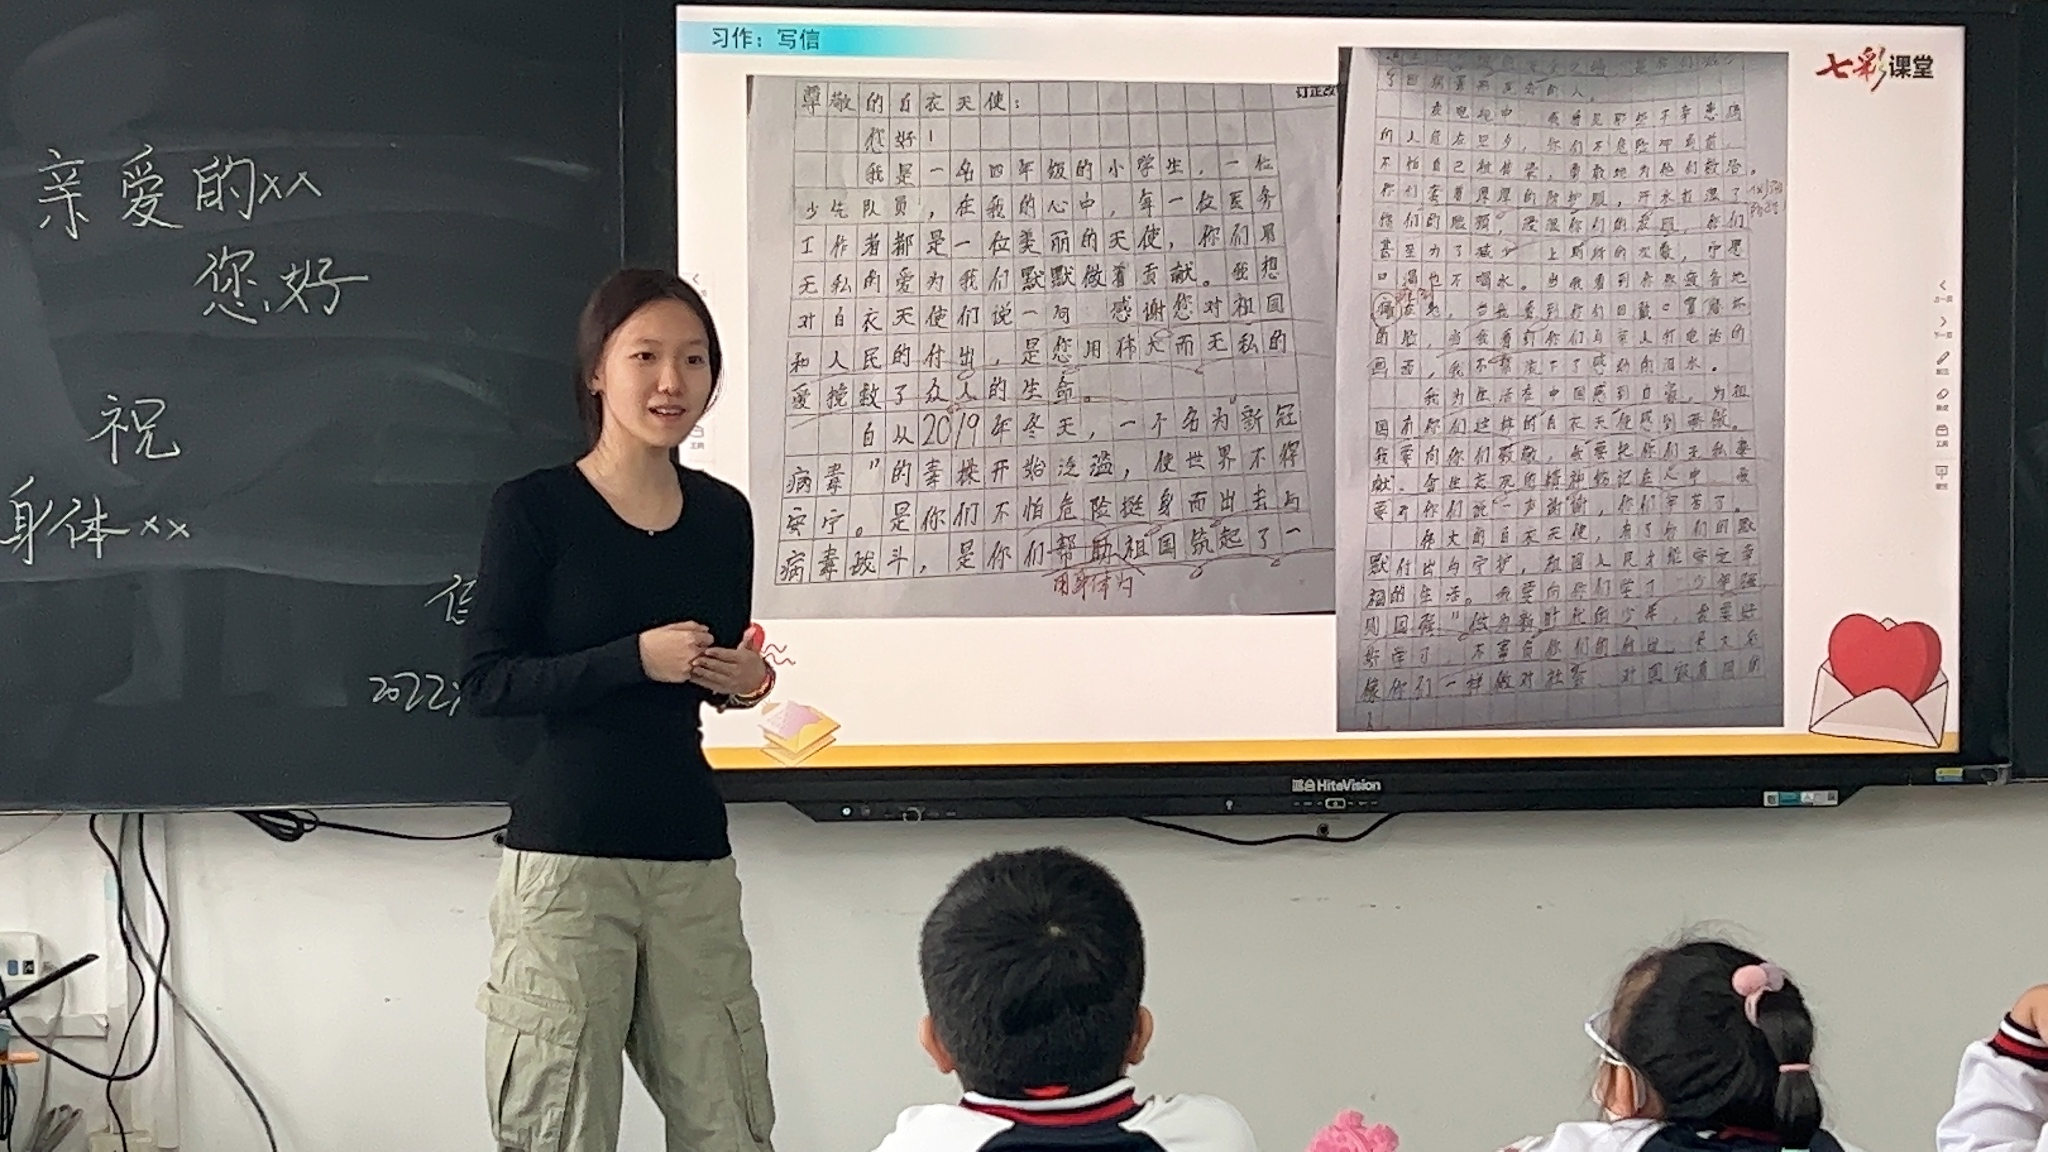 亲爱的xx
您好
祝
身体xx
信
2022
习作：写信
七彩课堂
订正改
尊敬的白衣天使：
您好！
我是一名四年级的小学生，一位
少先队员，在我的心中，每一位医务
工作者都是一位美丽的天使，你们用
无私的爱为我们默默做着贡献。我想
对白衣天使们说一句 感谢您对祖国
和人民的付出，是您用伟大而无私的
爱挽救了众人的生命。
自从2019年冬天，一个名为"新冠
病毒"的毒株开始泛滥，使世界不得
安宁。是你们不怕危险挺身而出去与
病毒战斗，是你们帮助祖国筑起了一
用身体为
在电视中
的人危在旦夕，你们不危险冲在前，
不怕自己被传染，勇敢地为他们救治。
你们穿着厚厚的防护服，汗水打湿了
你们的脸颊，浸湿你们的衣服，你们
甚至为了减少上厕所的次数，宁愿
口渴也不喝水。当我看到你们疲备地
的脸，当我看到你们与家人打电话的
画面，我不禁流下了感动的泪水。
我为生活在中国感到自豪，为祖
国有你们这样的白衣天使感到骄傲。
我要向你们致敬，我要把你们无私奉
献、舍生忘死的精神铭记在心中
要对你们说一声谢谢，你们辛苦了。
伟大的白衣天使，有了你们的默
默付出与守护，祖国人民才能安定幸
福的生活。我要向你们学习 少年强
则国强"做为新时代的少年，我要好
好学习 不辜负你们的付出 长大后
像你们一样做对社会、对国家有用的
人
上一页
下一页
工具
工具
鸿合HiteVision